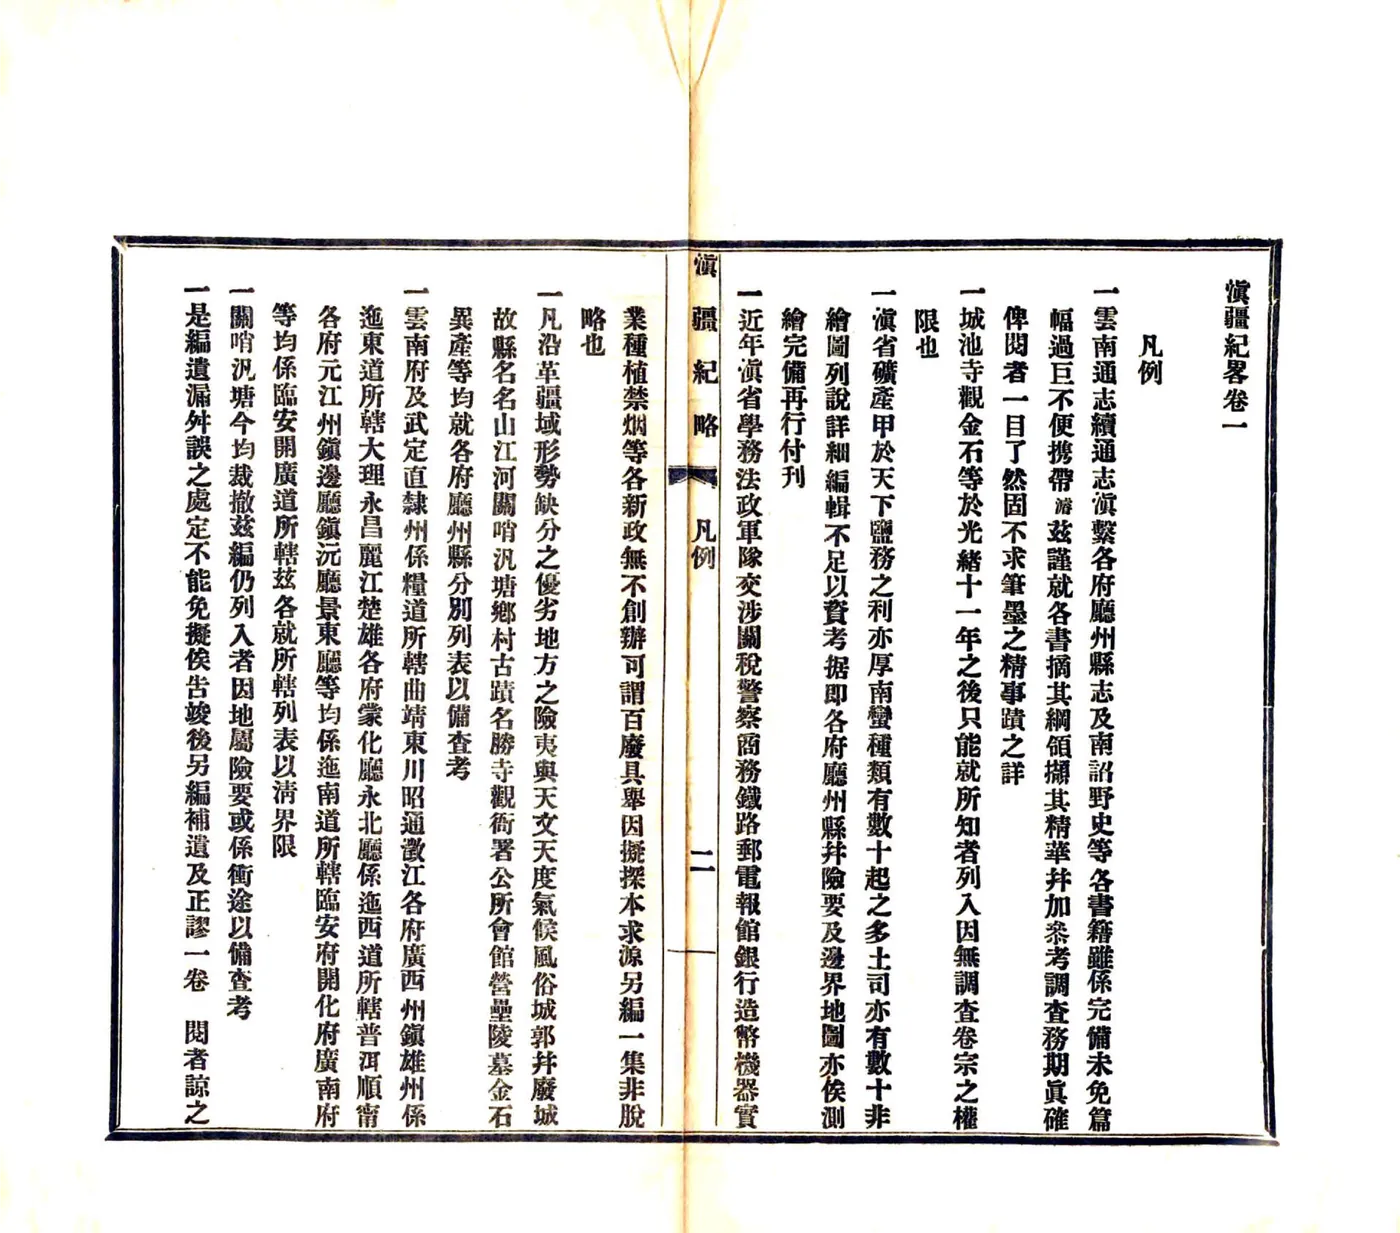 滇疆紀畧卷一
凡例
一雲南通志續通志滇繫各府廳州縣志及南詔野史等各書籍雖係完備未免篇
幅過巨不便携帶茲謹就各書摘其綱領擷其精華幷加叅考調查務期眞確
俾閱者一目了然固不求筆墨之精事蹟之詳
一城池寺觀金石等於光緒十一年之後只能就所知者列入因無調查卷宗之權
限也
一滇省礦產甲於天下鹽務之利亦厚南蠻種類有數十起之多土司亦有數十非
繪圖列說詳細編輯不足以資考据即各府廳州縣幷險要及邊界地圖亦俟測
繪完備再行付刊
一近年滇省學務法政軍隊交涉關稅警察商務鐵路郵電報館銀行造幣機器實
滇疆紀略
凡例
二
業種植禁烟等各新政無不創辦可謂百廢具舉因擬探本求源另編一集非脫
略也
一凡沿革疆域形勢缺分之優劣地方之險夷與天文天度氣候風俗城郭幷廢城
故縣名名山江河關哨汛塘鄉村古蹟名勝寺觀衙署公所會館營壘陵墓金石
異產等均就各府廳州縣分別列表以備查考
一雲南府及武定直隸州係糧道所轄曲靖東川昭通澂江各府廣西州鎭雄州係
迤東道所轄大理永昌麗江楚雄各府蒙化廳永北廳係迤西道所轄普洱順甯
各府元江州鎭邊廳鎭沅廳景東廳等均係迤南道所轄臨安府開化府廣南府
等均係臨安開廣道所轄茲各就所轄列表以淸界限
一關哨汛塘今均裁撤茲編仍列入者因地屬險要或係衝途以備查考
一是編遺漏舛誤之處定不能免擬俟吿竣後另編補遺及正謬一卷　閱者諒之